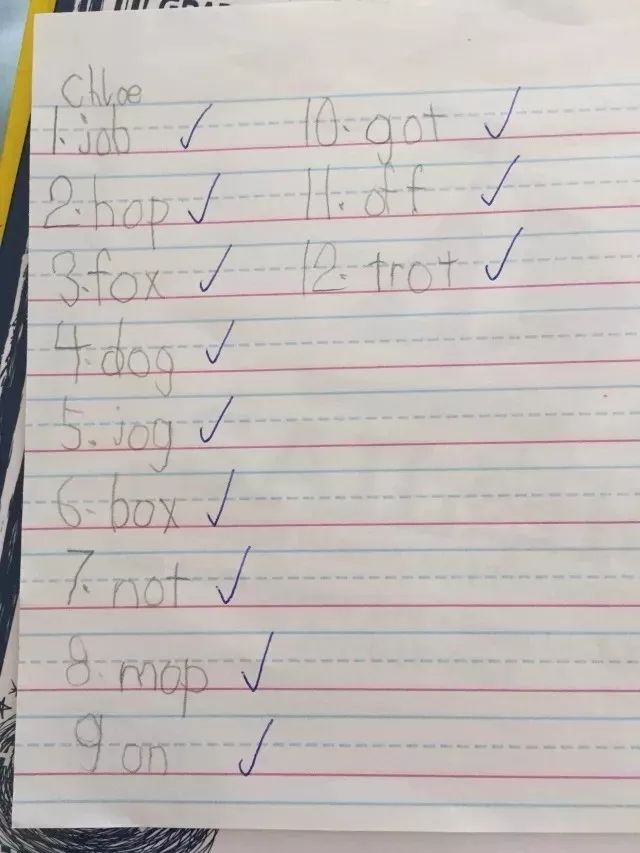 Chloe
1. job ✓
2. hop ✓
3. fox ✓
4. dog ✓
5. jog ✓
6. box ✓
7. not ✓
8. mop ✓
9 on ✓
10. got ✓
11. off ✓
12. trot ✓